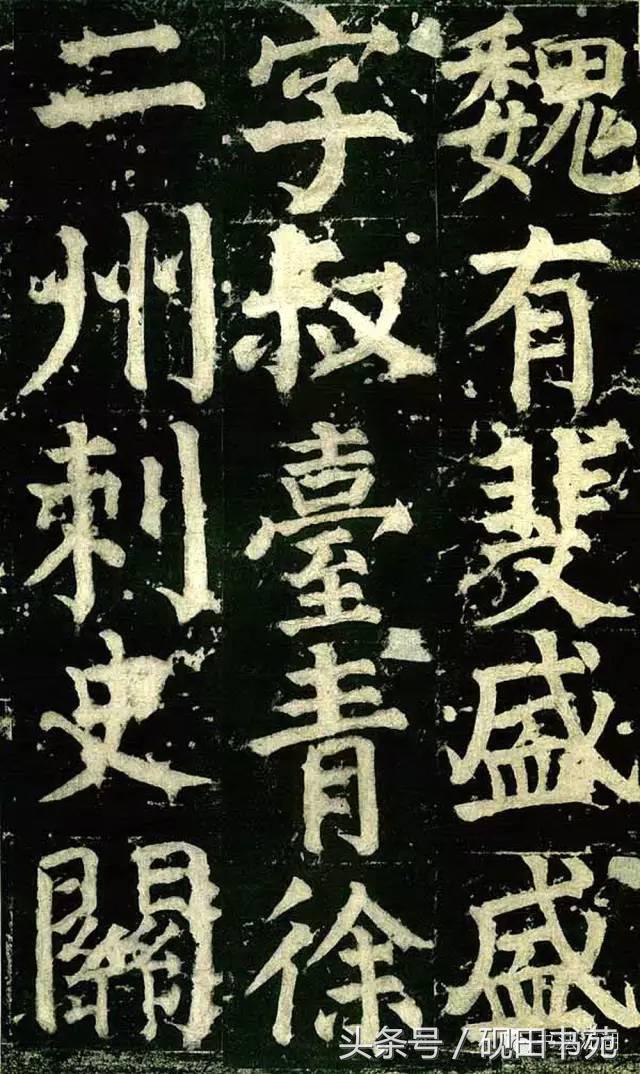 魏有斐盛盛
字叔臺青徐
二州刺史關
头条号 / 砚田书苑